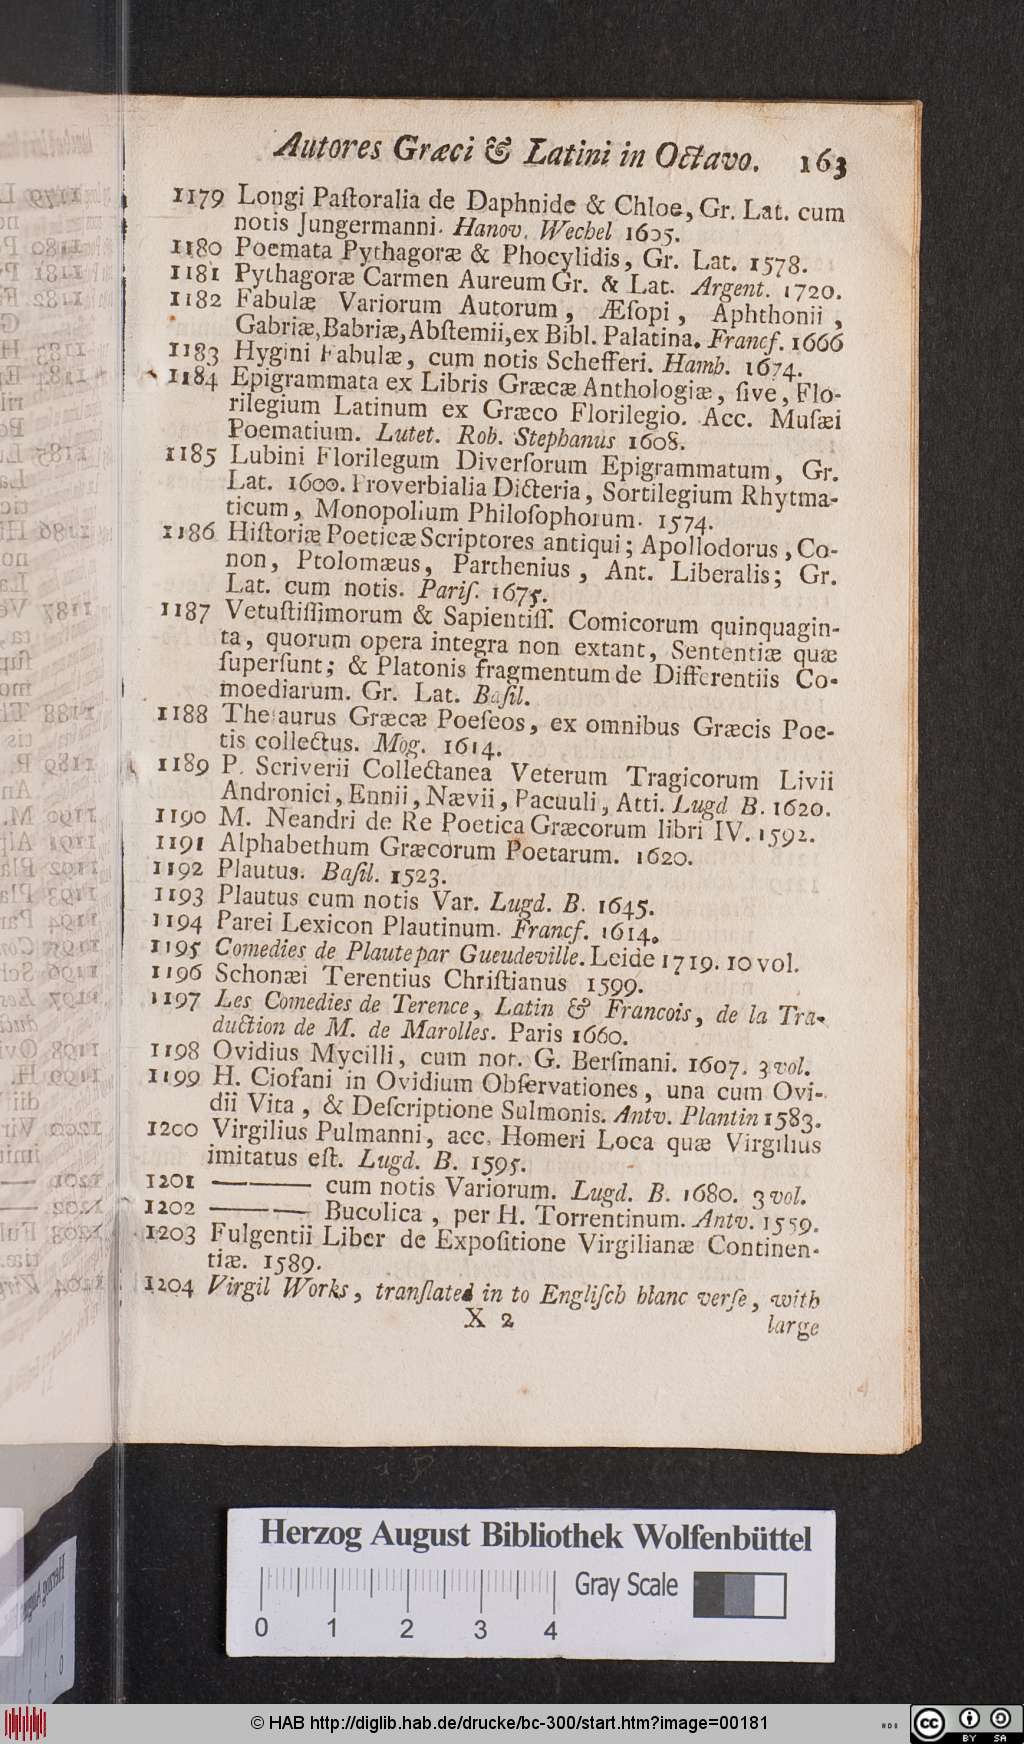 Autores Græci & Latini in Octavo. 163
1179 Longi Paſtoralia de Daphnide & Chloe, Gr. Lat. cum
notis Jungermanni. Hanov. Wechel 1605.
1180 Poemata Pythagoræ & Phocylidis, Gr. Lat. 1578.
1181 Pythagoræ Carmen Aureum Gr. & Lat. Argent. 1720.
1182 Fabulæ Variorum Autorum, Æſopi, Aphthonii,
Gabriæ, Babriæ, Abſtemii, ex Bibl. Palatina. Francf. 1666
1183 Hygini Fabulæ, cum notis Schefferi. Hamb. 1674.
1184 Epigrammata ex Libris Græcæ Anthologiæ, ſive, Flo-
rilegium Latinum ex Græco Florilegio. Acc. Muſæi
Poematium. Lutet. Rob. Stephanus 1608.
1185 Lubini Florilegum Diverſorum Epigrammatum, Gr.
Lat. 1600. Proverbialia Dicteria, Sortilegium Rhytma-
ticum, Monopolium Philoſophorum. 1574.
1186 Hiſtoriæ Poeticæ Scriptores antiqui; Apollodorus, Co-
non, Ptolomæus, Parthenius, Ant. Liberalis; Gr.
Lat. cum notis. Pariſ. 1675.
1187 Vetuſtiſſimorum & Sapientiſſ. Comicorum quinquagin-
ta, quorum opera integra non extant, Sententiæ quæ
ſuperſunt; & Platonis fragmentum de Differentiis Co-
moediarum. Gr. Lat. Baſil.
1188 Theſaurus Græcæ Poeſeos, ex omnibus Græcis Poe-
tis collectus. Mog. 1614.
1189 P. Scriverii Collectanea Veterum Tragicorum Livii
Andronici, Ennii, Nævii, Pacuuli, Atti. Lugd B. 1620.
1190 M. Neandri de Re Poetica Græcorum libri IV. 1592.
1191 Alphabethum Græcorum Poetarum. 1620.
1192 Plautus. Baſil. 1523.
1193 Plautus cum notis Var. Lugd. B. 1645.
1194 Parei Lexicon Plautinum. Francf. 1614.
1195 Comedies de Plaute par Gueudeville. Leide 1719. 10 vol.
1196 Schonæi Terentius Chriſtianus 1599.
1197 Les Comedies de Terence, Latin & Francois, de la Tra-
duction de M. de Marolles. Paris 1660.
1198 Ovidius Mycilli, cum not. G. Berſmani. 1607. 3 vol.
1199 H. Ciofani in Ovidium Obſervationes, una cum Ovi-
dii Vita, & Deſcriptione Sulmonis. Antv. Plantin 1583.
1200 Virgilius Pulmanni, acc. Homeri Loca quæ Virgilius
imitatus eſt. Lugd. B. 1595.
1201 ——— cum notis Variorum. Lugd. B. 1680. 3 vol.
1202 ——— Bucolica, per H. Torrentinum. Antv. 1559.
1203 Fulgentii Liber de Expoſitione Virgilianæ Continen-
tiæ. 1589.
1204 Virgil Works, tranſlated in to Engliſch blanc verſe, with
X 2 large
Herzog August Bibliothek Wolfenbüttel
Gray Scale
0 1 2 3 4
© HAB http://diglib.hab.de/drucke/bc-300/start.htm?image=00181
cc BY SA